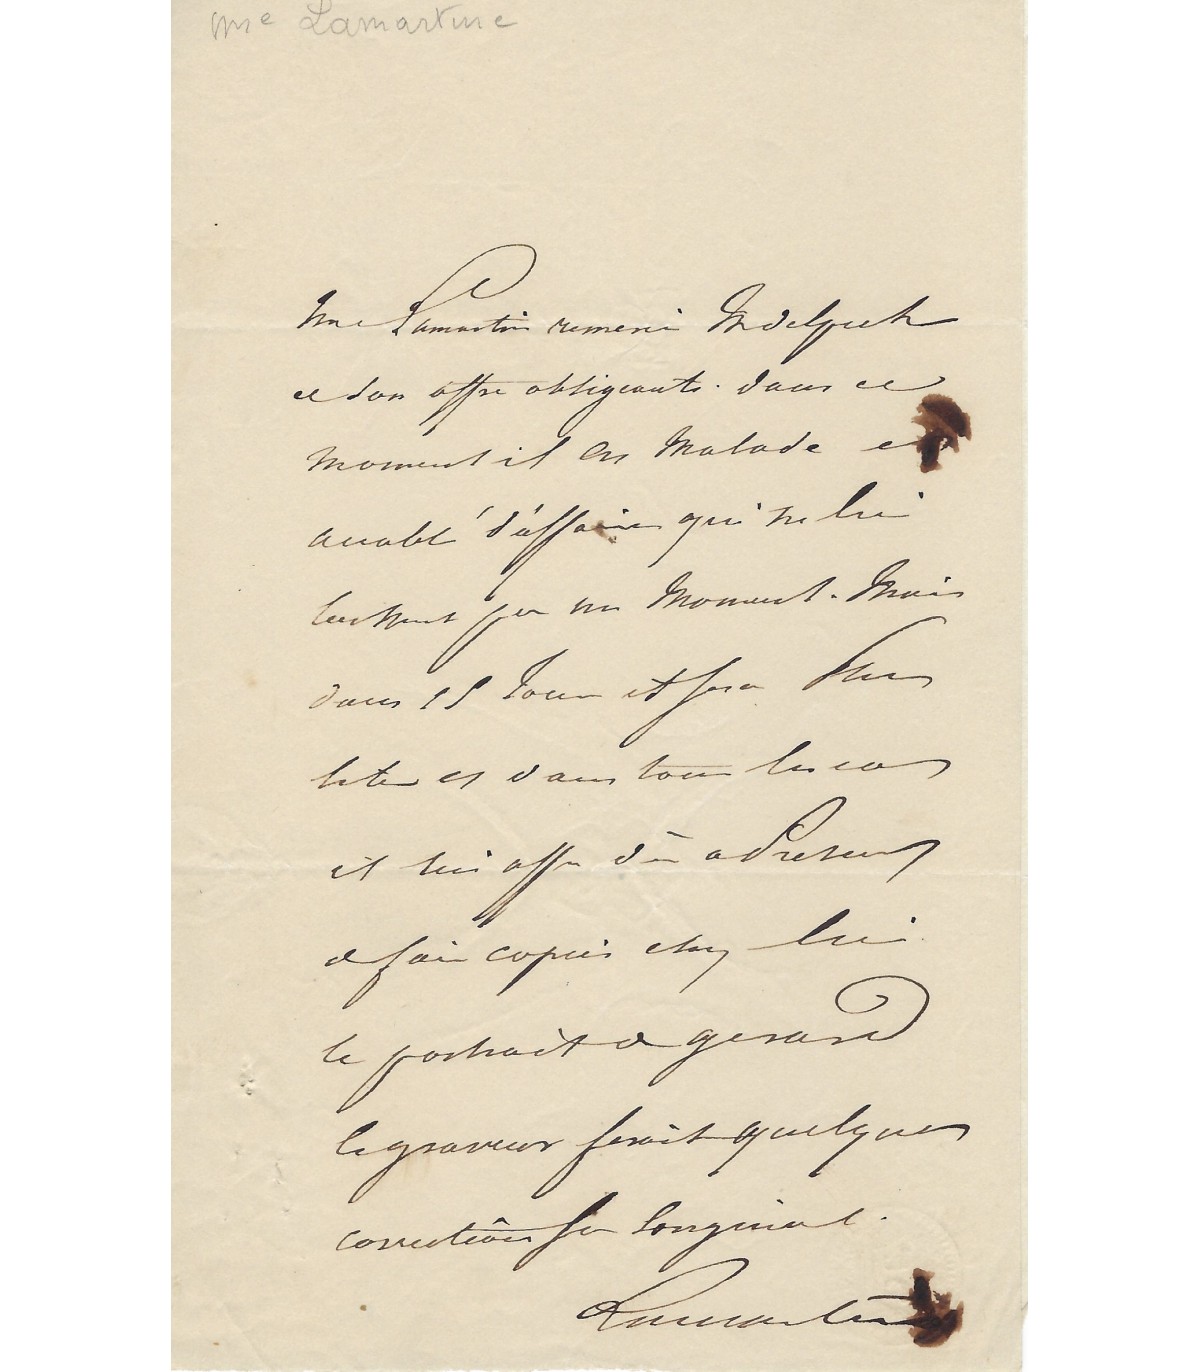 Mme Lamartine
Mme Lamartine remercie Mr delpech
de son offre obligeante. dans ce
moment il est malade et
accablé d'affaires qui ne lui
laissent pas un moment. Mais
dans 15 jours il sera plus
libre et dans tous les cas
il lui offre dès à présent
de faire copier chez lui
le portrait de gerard
le graveur ferait quelques
corrections sur l'original.
Lamartine